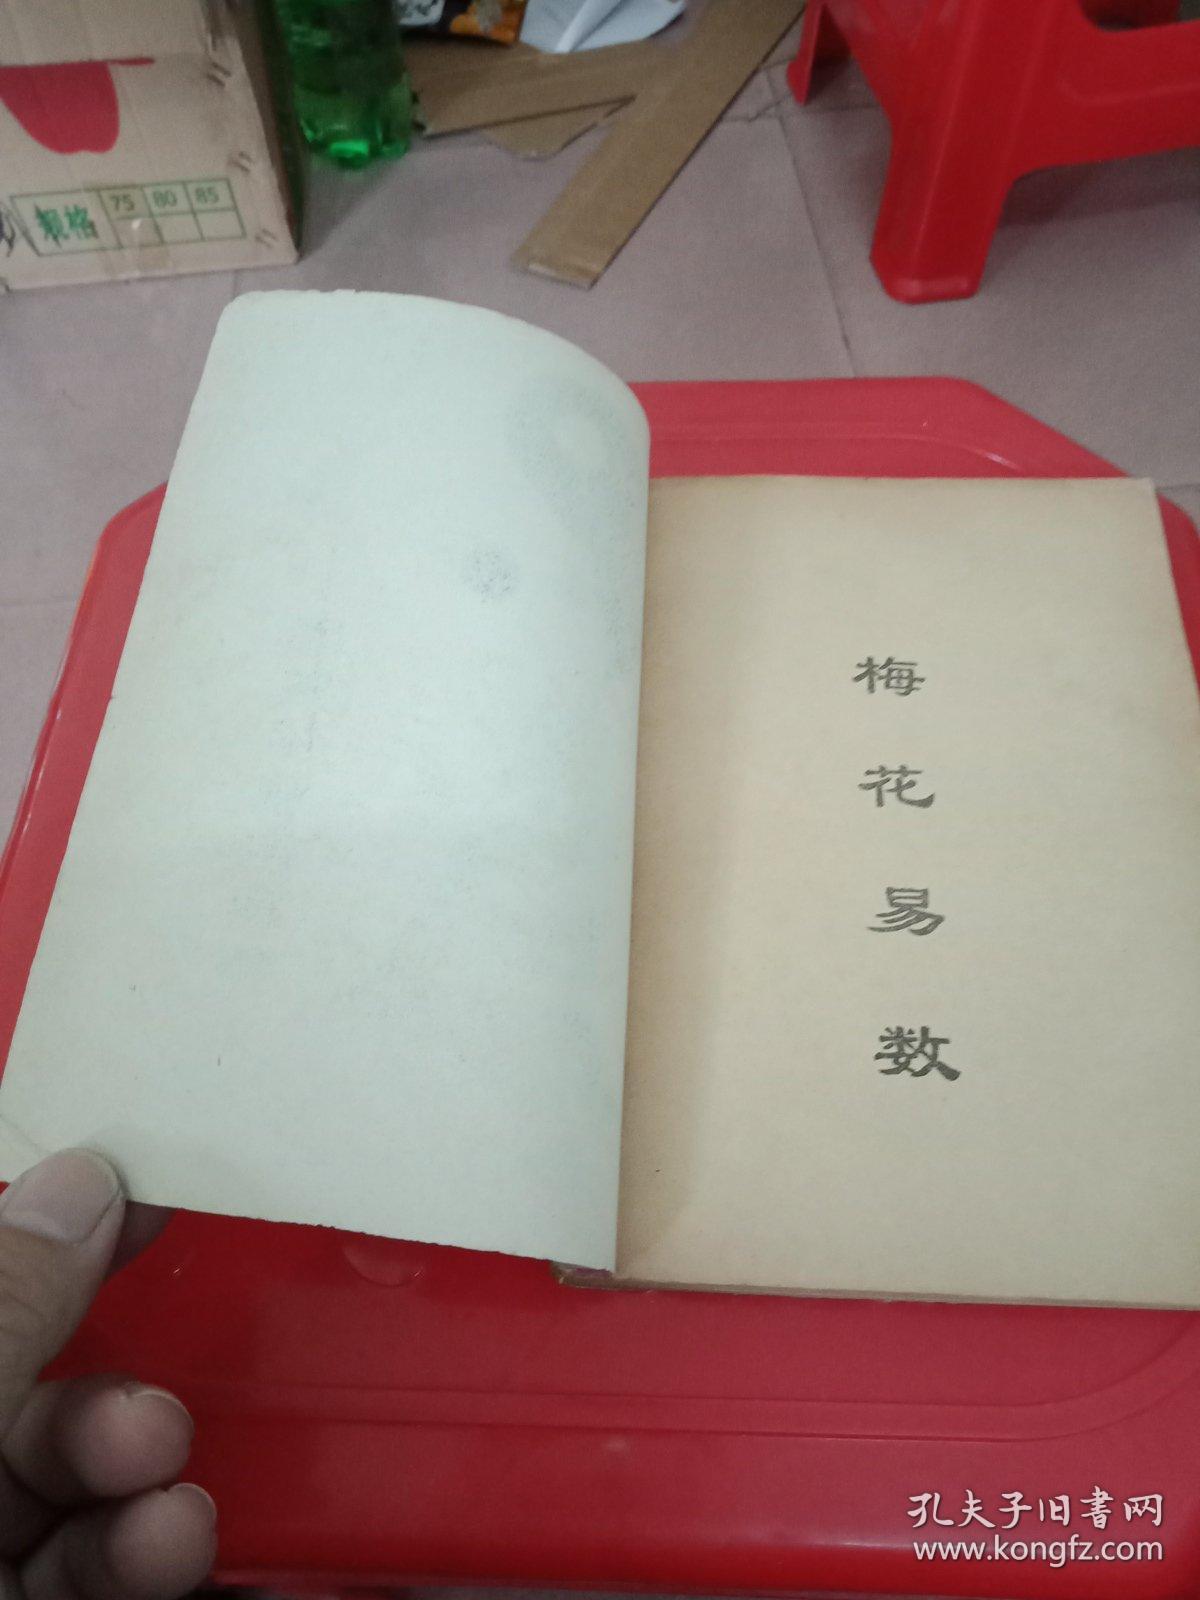 规格 75 80 85
梅
花
易
数
孔夫子旧書网
www.kongfz.com